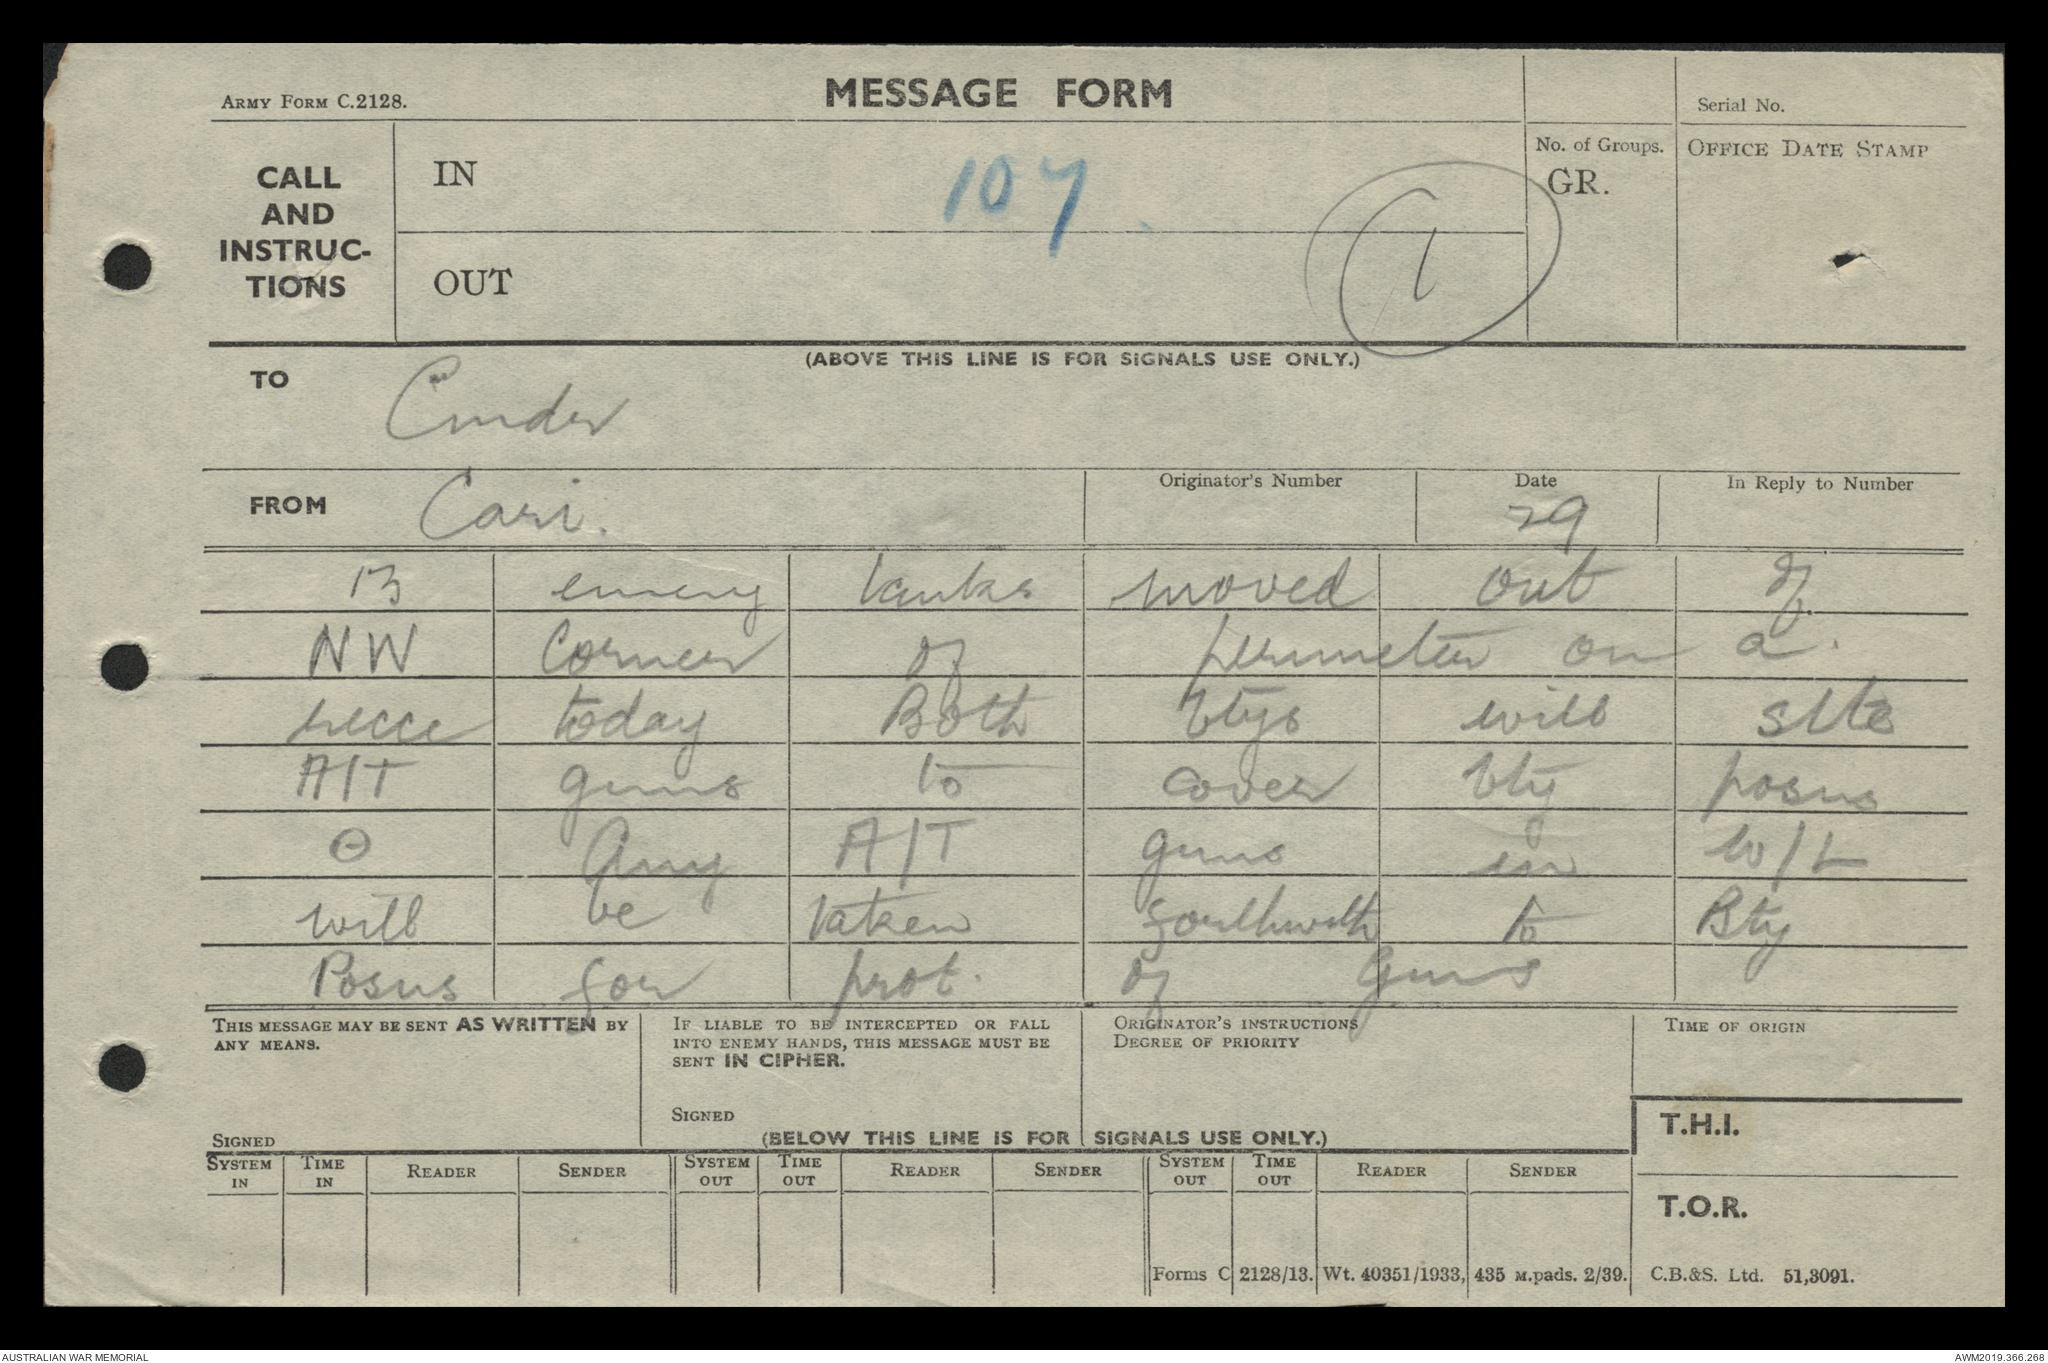 ARMY FORM C.2128.
MESSAGE FORM
Serial No.
CALL
AND
INSTRUC-
TIONS
IN
107
OUT
1
No. of Groups.
GR.
OFFICE DATE STAMP
(ABOVE THIS LINE IS FOR SIGNALS USE ONLY.)
TO
Cinder
FROM
Cari.
Originator's Number
Date
29
In Reply to Number
13 enemy tanks moved out of
NW corner of perimeter on a.
recce today Both btys will site
A/T guns to cover bty posns
Θ Any A/T guns in W/L
will be taken forthwith to Bty
Posns for prot. of Guns
THIS MESSAGE MAY BE SENT AS WRITTEN BY
ANY MEANS.
SIGNED
IF LIABLE TO BE INTERCEPTED OR FALL
INTO ENEMY HANDS, THIS MESSAGE MUST BE
SENT IN CIPHER.
SIGNED
ORIGINATOR'S INSTRUCTIONS
DEGREE OF PRIORITY
TIME OF ORIGIN
(BELOW THIS LINE IS FOR SIGNALS USE ONLY.)
T.H.I.
SYSTEM IN TIME IN READER SENDER SYSTEM OUT TIME OUT READER SENDER SYSTEM OUT TIME OUT READER SENDER
T.O.R.
Forms C 2128/13. Wt. 40351/1933, 435 M.pads. 2/39. C.B.&S. Ltd. 51,3091.
AUSTRALIAN WAR MEMORIAL
AWM2019.366.268